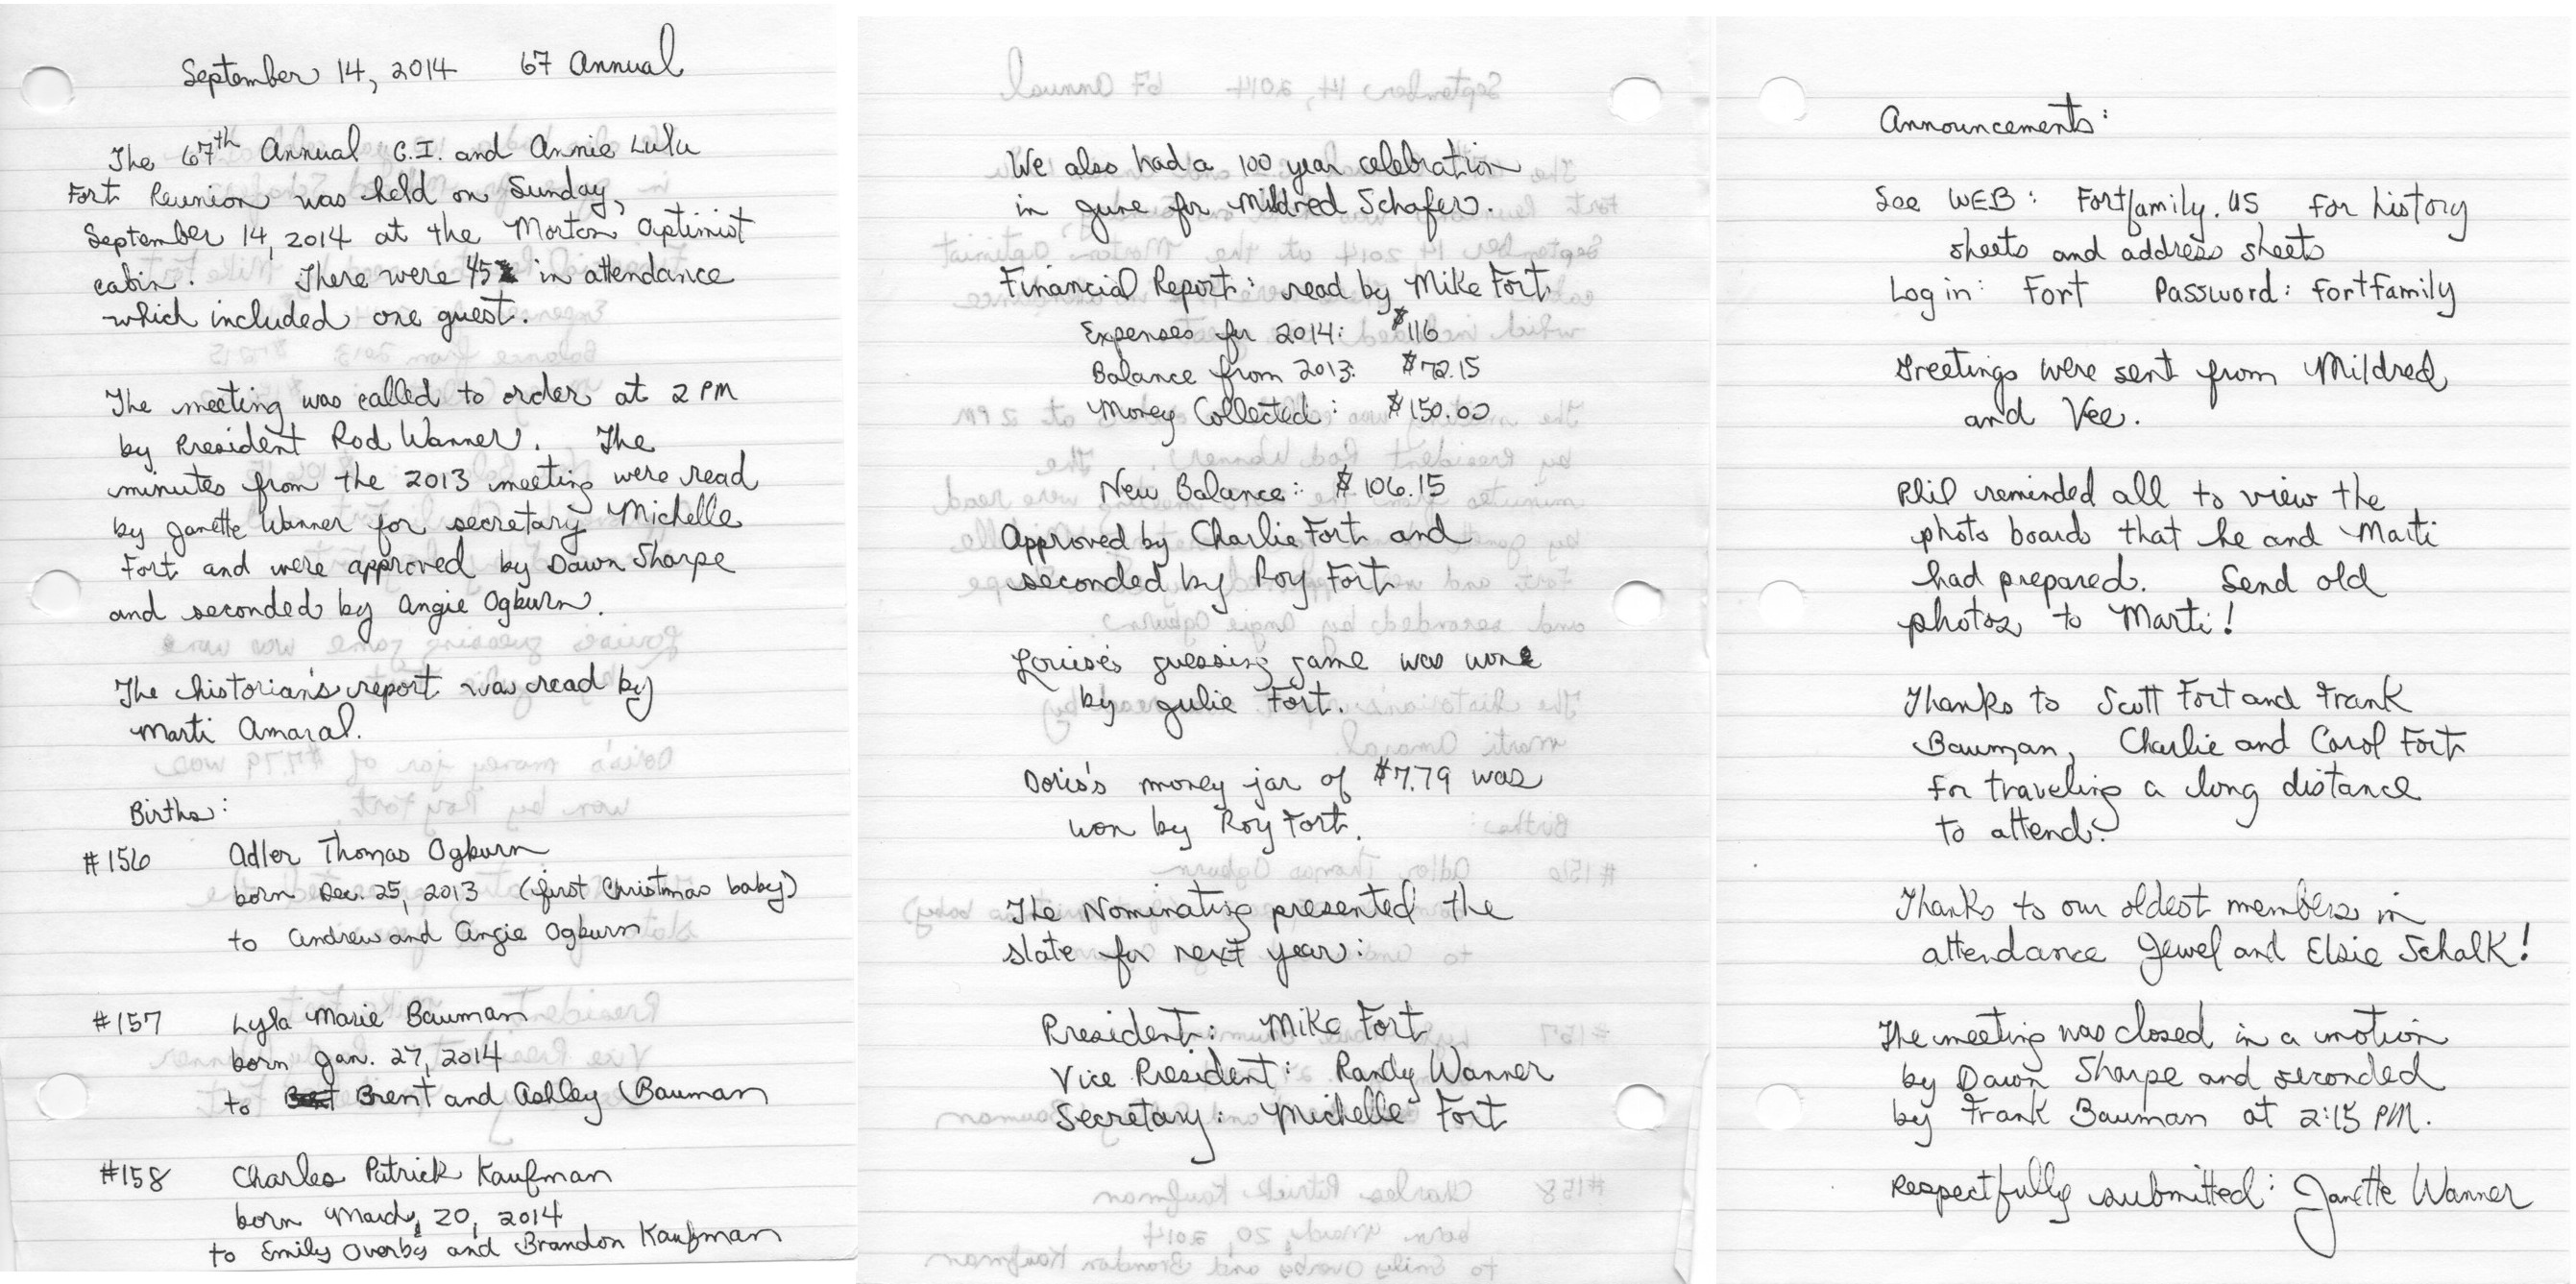 September 14, 2014 67 Annual
The 67th Annual C.I. and Annie Lulu
Fort Reunion was held on Sunday,
September 14, 2014 at the Morton Optimist
cabin. There were 45 in attendance
which included one guest.
The meeting was called to order at 2 PM
by President Rod Wanner. The
minutes from the 2013 meeting were read
by Janette Wanner for secretary Michelle
Fort and were approved by Dawn Sharpe
and seconded by Angie Ogburn.
The historian's report was read by
Marti Amaral.
Births:
#156 Adler Thomas Ogburn
born Dec. 25, 2013 (first Christmas baby)
to Andrew and Angie Ogburn
#157 Lyla Marie Bauman
born Jan. 27, 2014
to Brent and Ashley Bauman
#158 Charles Patrick Kaufman
born March 20, 2014
to Emily Overby and Brandon Kaufman
We also had a 100 year celebration
in June for Mildred Schafer.
Financial Report: read by Mike Fort
Expenses for 2014: $116
Balance from 2013: $72.15
Money Collected: $150.00
New Balance: $106.15
Approved by Charlie Fort and
seconded by Roy Fort
Louise's guessing game was won
by Julie Fort.
Doris's money jar of $7.79 was
won by Roy Fort.
The Nominating presented the
slate for next year:
President: Mike Fort
Vice President: Randy Wanner
Secretary: Michelle Fort
Announcements:
See WEB: Fortfamily.US for history
sheets and address sheets
Log in: Fort Password: fortfamily
Greetings were sent from Mildred
and Vee.
Phil reminded all to view the
photo boards that he and Marti
had prepared. Send old
photos to Marti!
Thanks to Scott Fort and Frank
Bauman, Charlie and Carol Fort
for traveling a long distance
to attend.
Thanks to our oldest members in
attendance Jewel and Elsie Schalk!
The meeting was closed in a motion
by Dawn Sharpe and seconded
by Frank Bauman at 2:15 PM.
Respectfully submitted: Janette Wanner